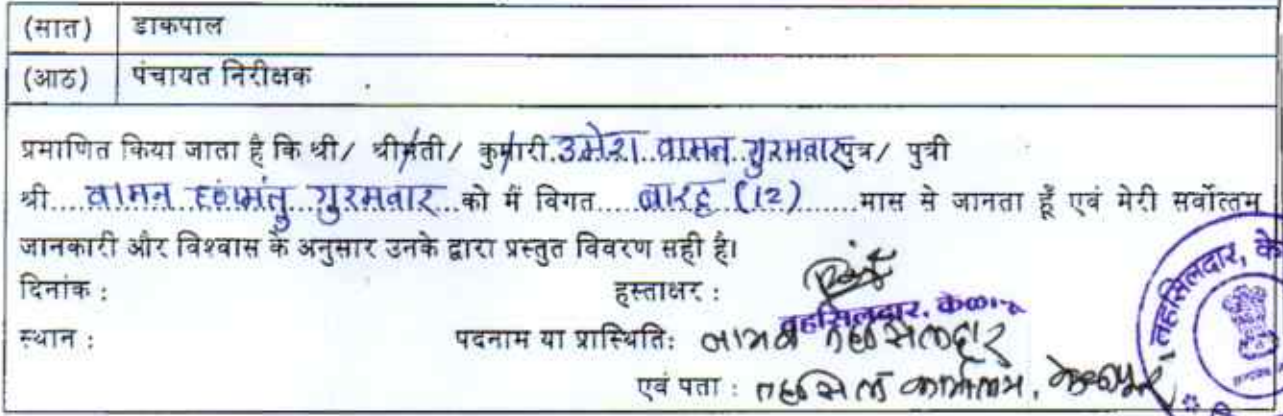 (सात) डाकपाल
(आठ) पंचायत निरीक्षक
प्रमाणित किया जाता है कि श्री/ श्रीमती/ कुमारी.उमेश वामन गुरमवार पुत्र/ पुत्री
श्री.....वामन हणमंतु गुरमवार...को मैं विगत.....बारह (12).......मास से जानता हूँ एवं मेरी सर्वोत्तम
जानकारी और विश्वास के अनुसार उनके द्वारा प्रस्तुत विवरण सही है।
दिनांक : हस्ताक्षर :
तहसिलदार, केळापूर
स्थान : पदनाम या प्रास्थिति: नायब तहसिलदार
एवं पता : तहसिल कार्यालय, केळापूर
तहसिलदार, के